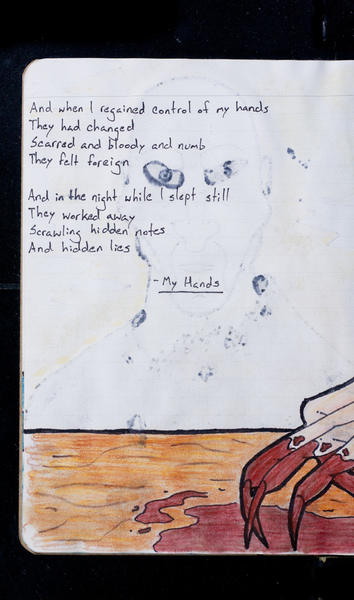 And when I regained control of my hands
They had changed
Scarred and bloody and numb
They felt foreign
And in the night while I slept still
They worked away
Scrawling hidden notes
And hidden lies
- My Hands